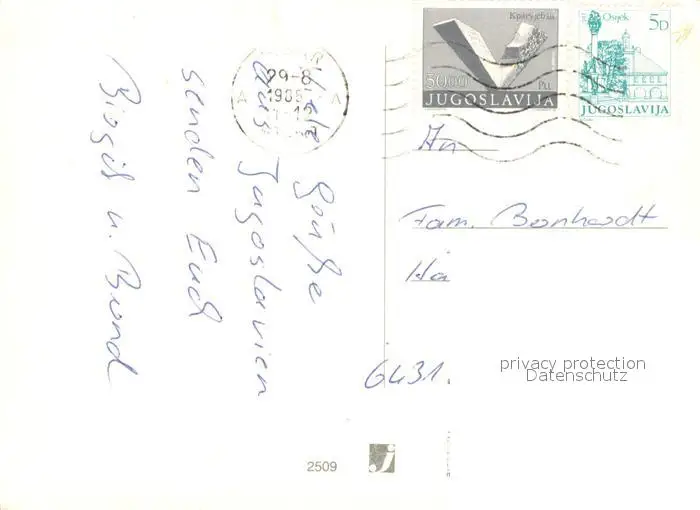 Viele Grüße
aus Jugoslavien
senden Euch
Birgit u. Bernd
29-8
1985
Крагујевац
50,00
JUGOSLAVIJA
Osijek
5D
JUGOSLAVIJA
An
Fam. Bernhardt
6431.
privacy protection
Datenschutz
2509
j